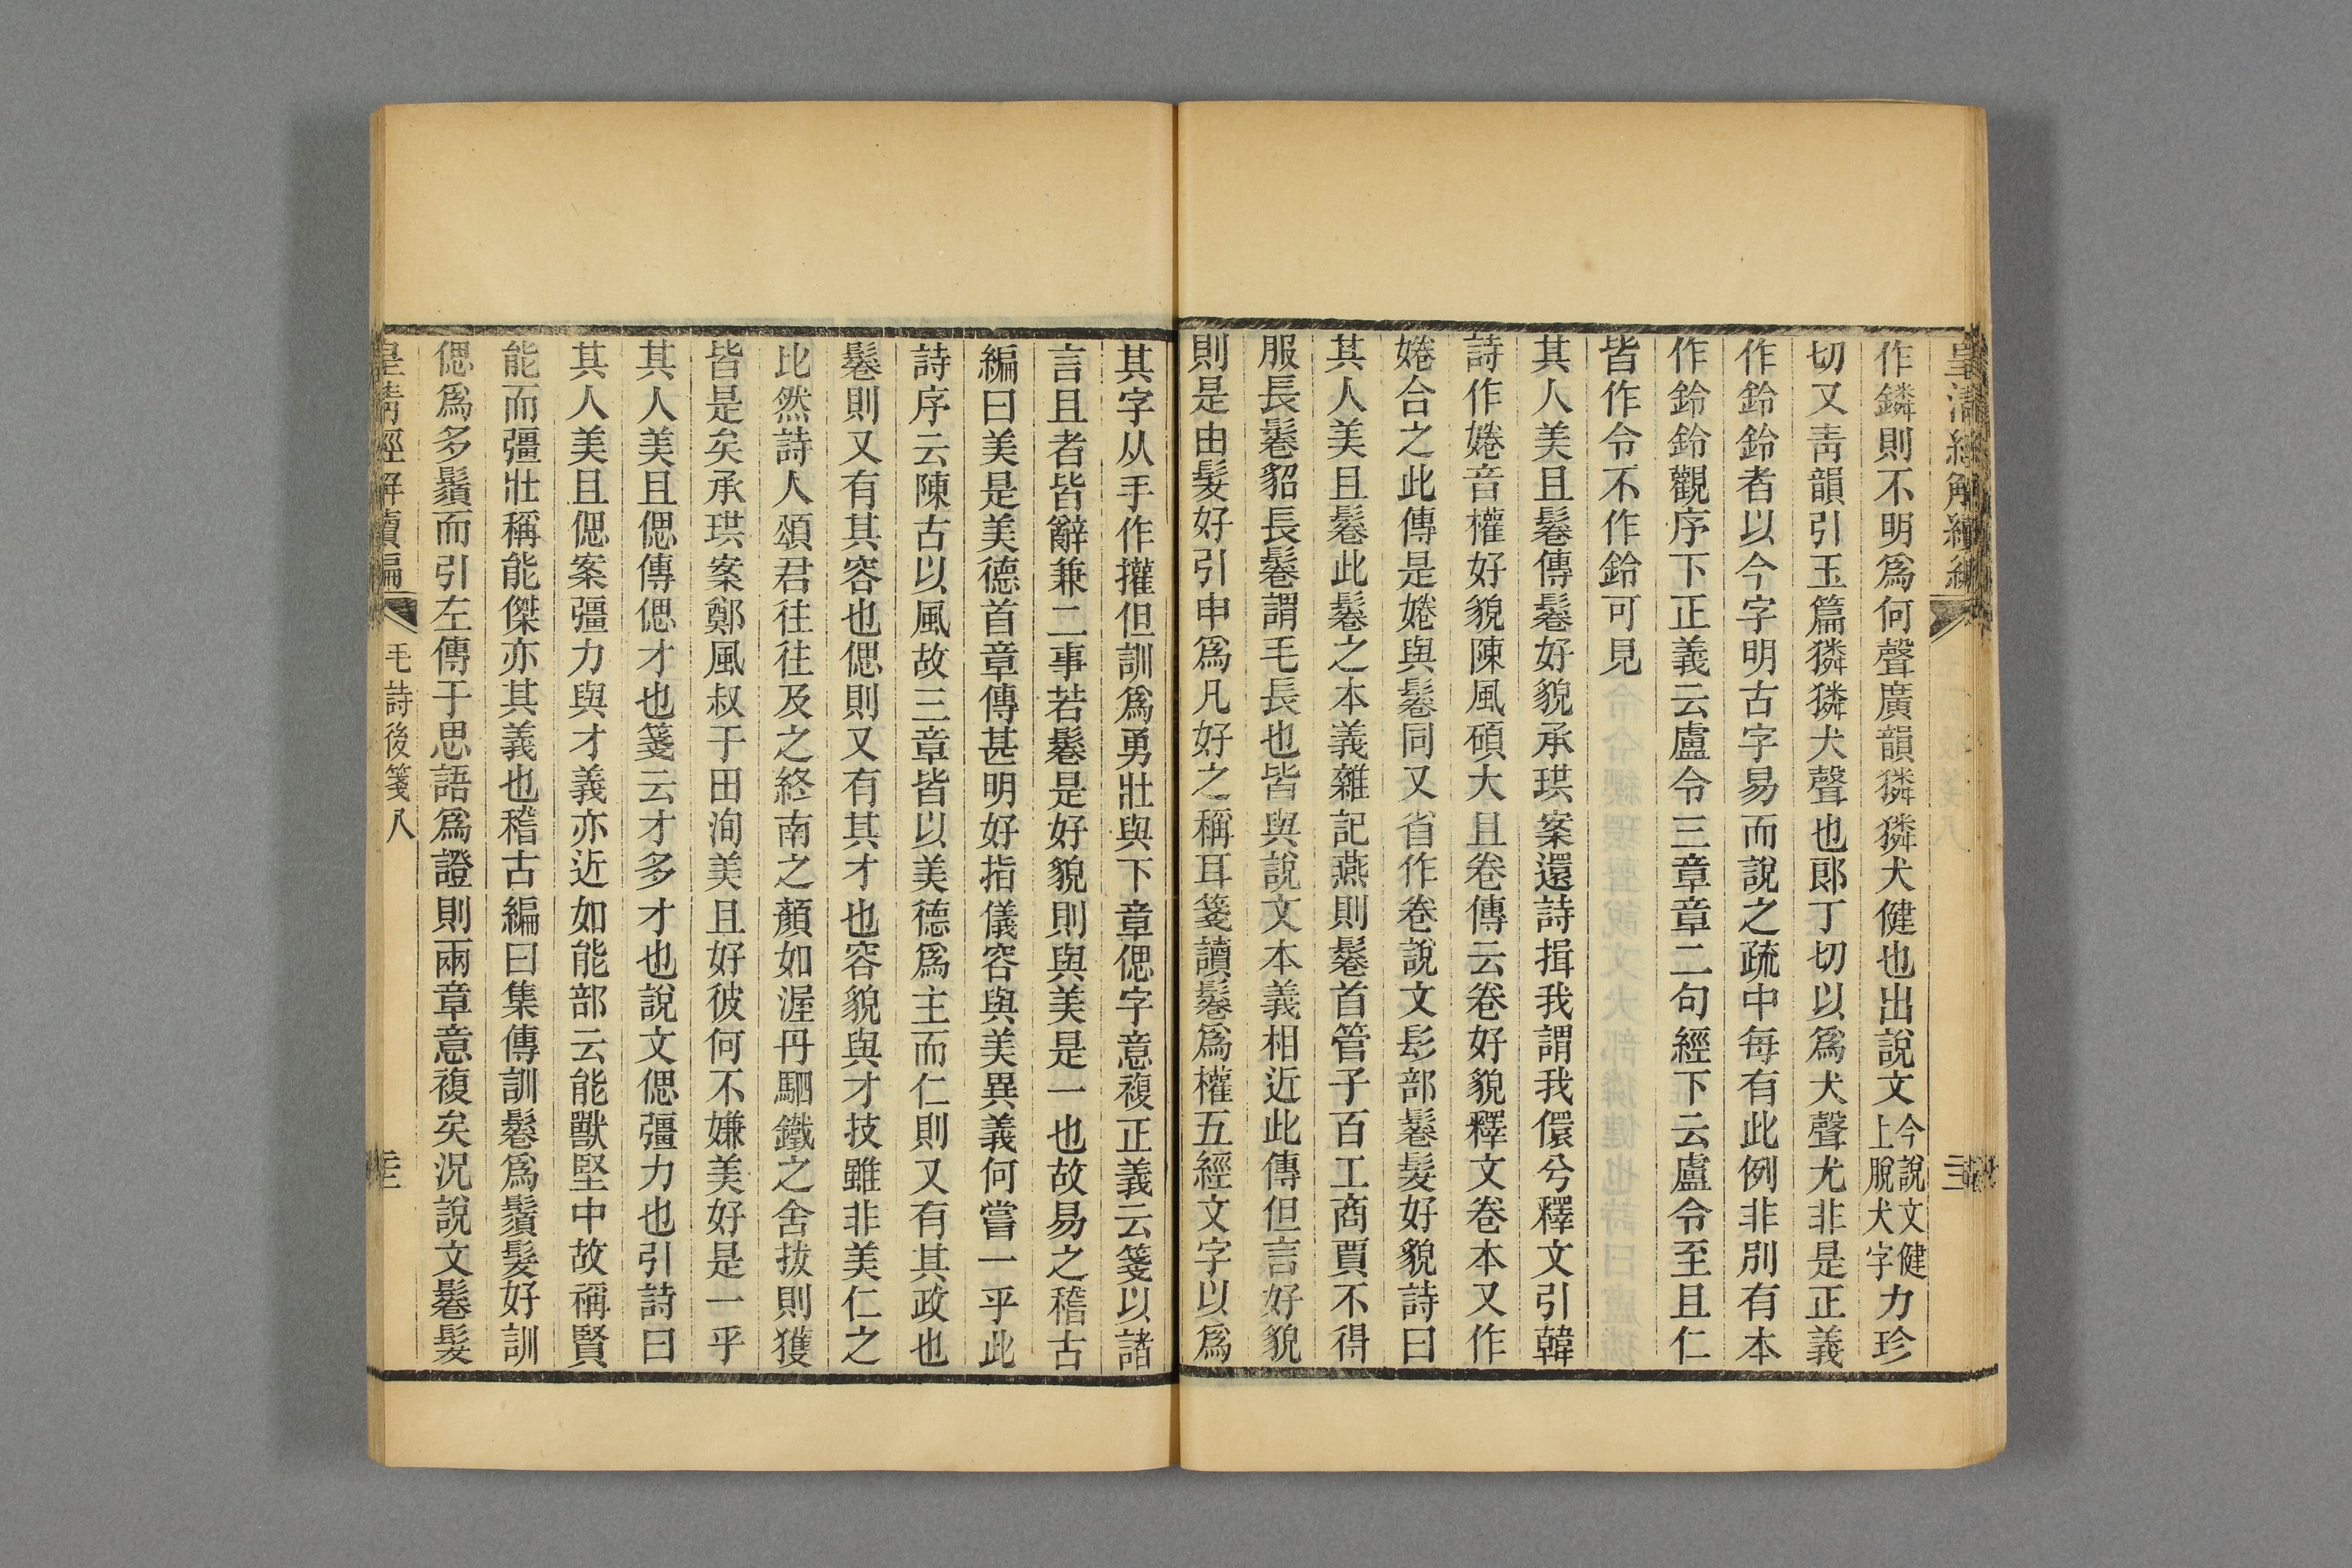 皇清經解續編
作鏻則不明爲何聲廣韻獜獜犬健也出說文今說文健上脫犬字力珍
切又靑韻引玉篇獜獜犬聲也郞丁切以爲犬聲尤非是正義
作鈴鈴者以今字明古字易而說之疏中每有此例非別有本
作鈴鈴觀序下正義云盧令三章章二句經下云盧令至且仁
皆作令不作鈴可見
其人美且鬈傳鬈好貌承珙案還詩揖我謂我儇兮釋文引韓
詩作婘音權好貌陳風碩大且卷傳云卷好貌釋文卷本又作
婘合之此傳是婘與鬈同又省作卷說文髟部鬈髮好貌詩曰
其人美且鬈此鬈之本義雜記燕則鬈首管子百工商賈不得
服長鬈貂長鬈謂毛長也皆與說文本義相近此傳但言好貌
則是由髮好引申爲凡好之稱耳箋讀鬈爲權五經文字以爲
其字从手作攉但訓爲勇壯與下章偲字意複正義云箋以諸
言且者皆辭兼二事若鬈是好貌則與美是一也故易之稽古
編曰美是美德首章傳甚明好指儀容與美異義何嘗一乎此
詩序云陳古以風故三章皆以美德爲主而仁則又有其政也
鬈則又有其容也偲則又有其才也容貌與才技雖非美仁之
比然詩人頌君往往及之終南之顏如渥丹駟鐵之舍拔則獲
皆是矣承珙案鄭風叔于田洵美且好彼何不嫌美好是一乎
其人美且偲傳偲才也箋云才多才也說文偲彊力也引詩曰
其人美且偲案彊力與才義亦近如能部云能獸堅中故稱賢
能而彊壯稱能傑亦其義也稽古編曰集傳訓鬈爲鬚髮好訓
偲爲多鬚而引左傳于思語爲證則兩章意複矣況說文鬈髮
皇清經解續編 毛詩後箋八